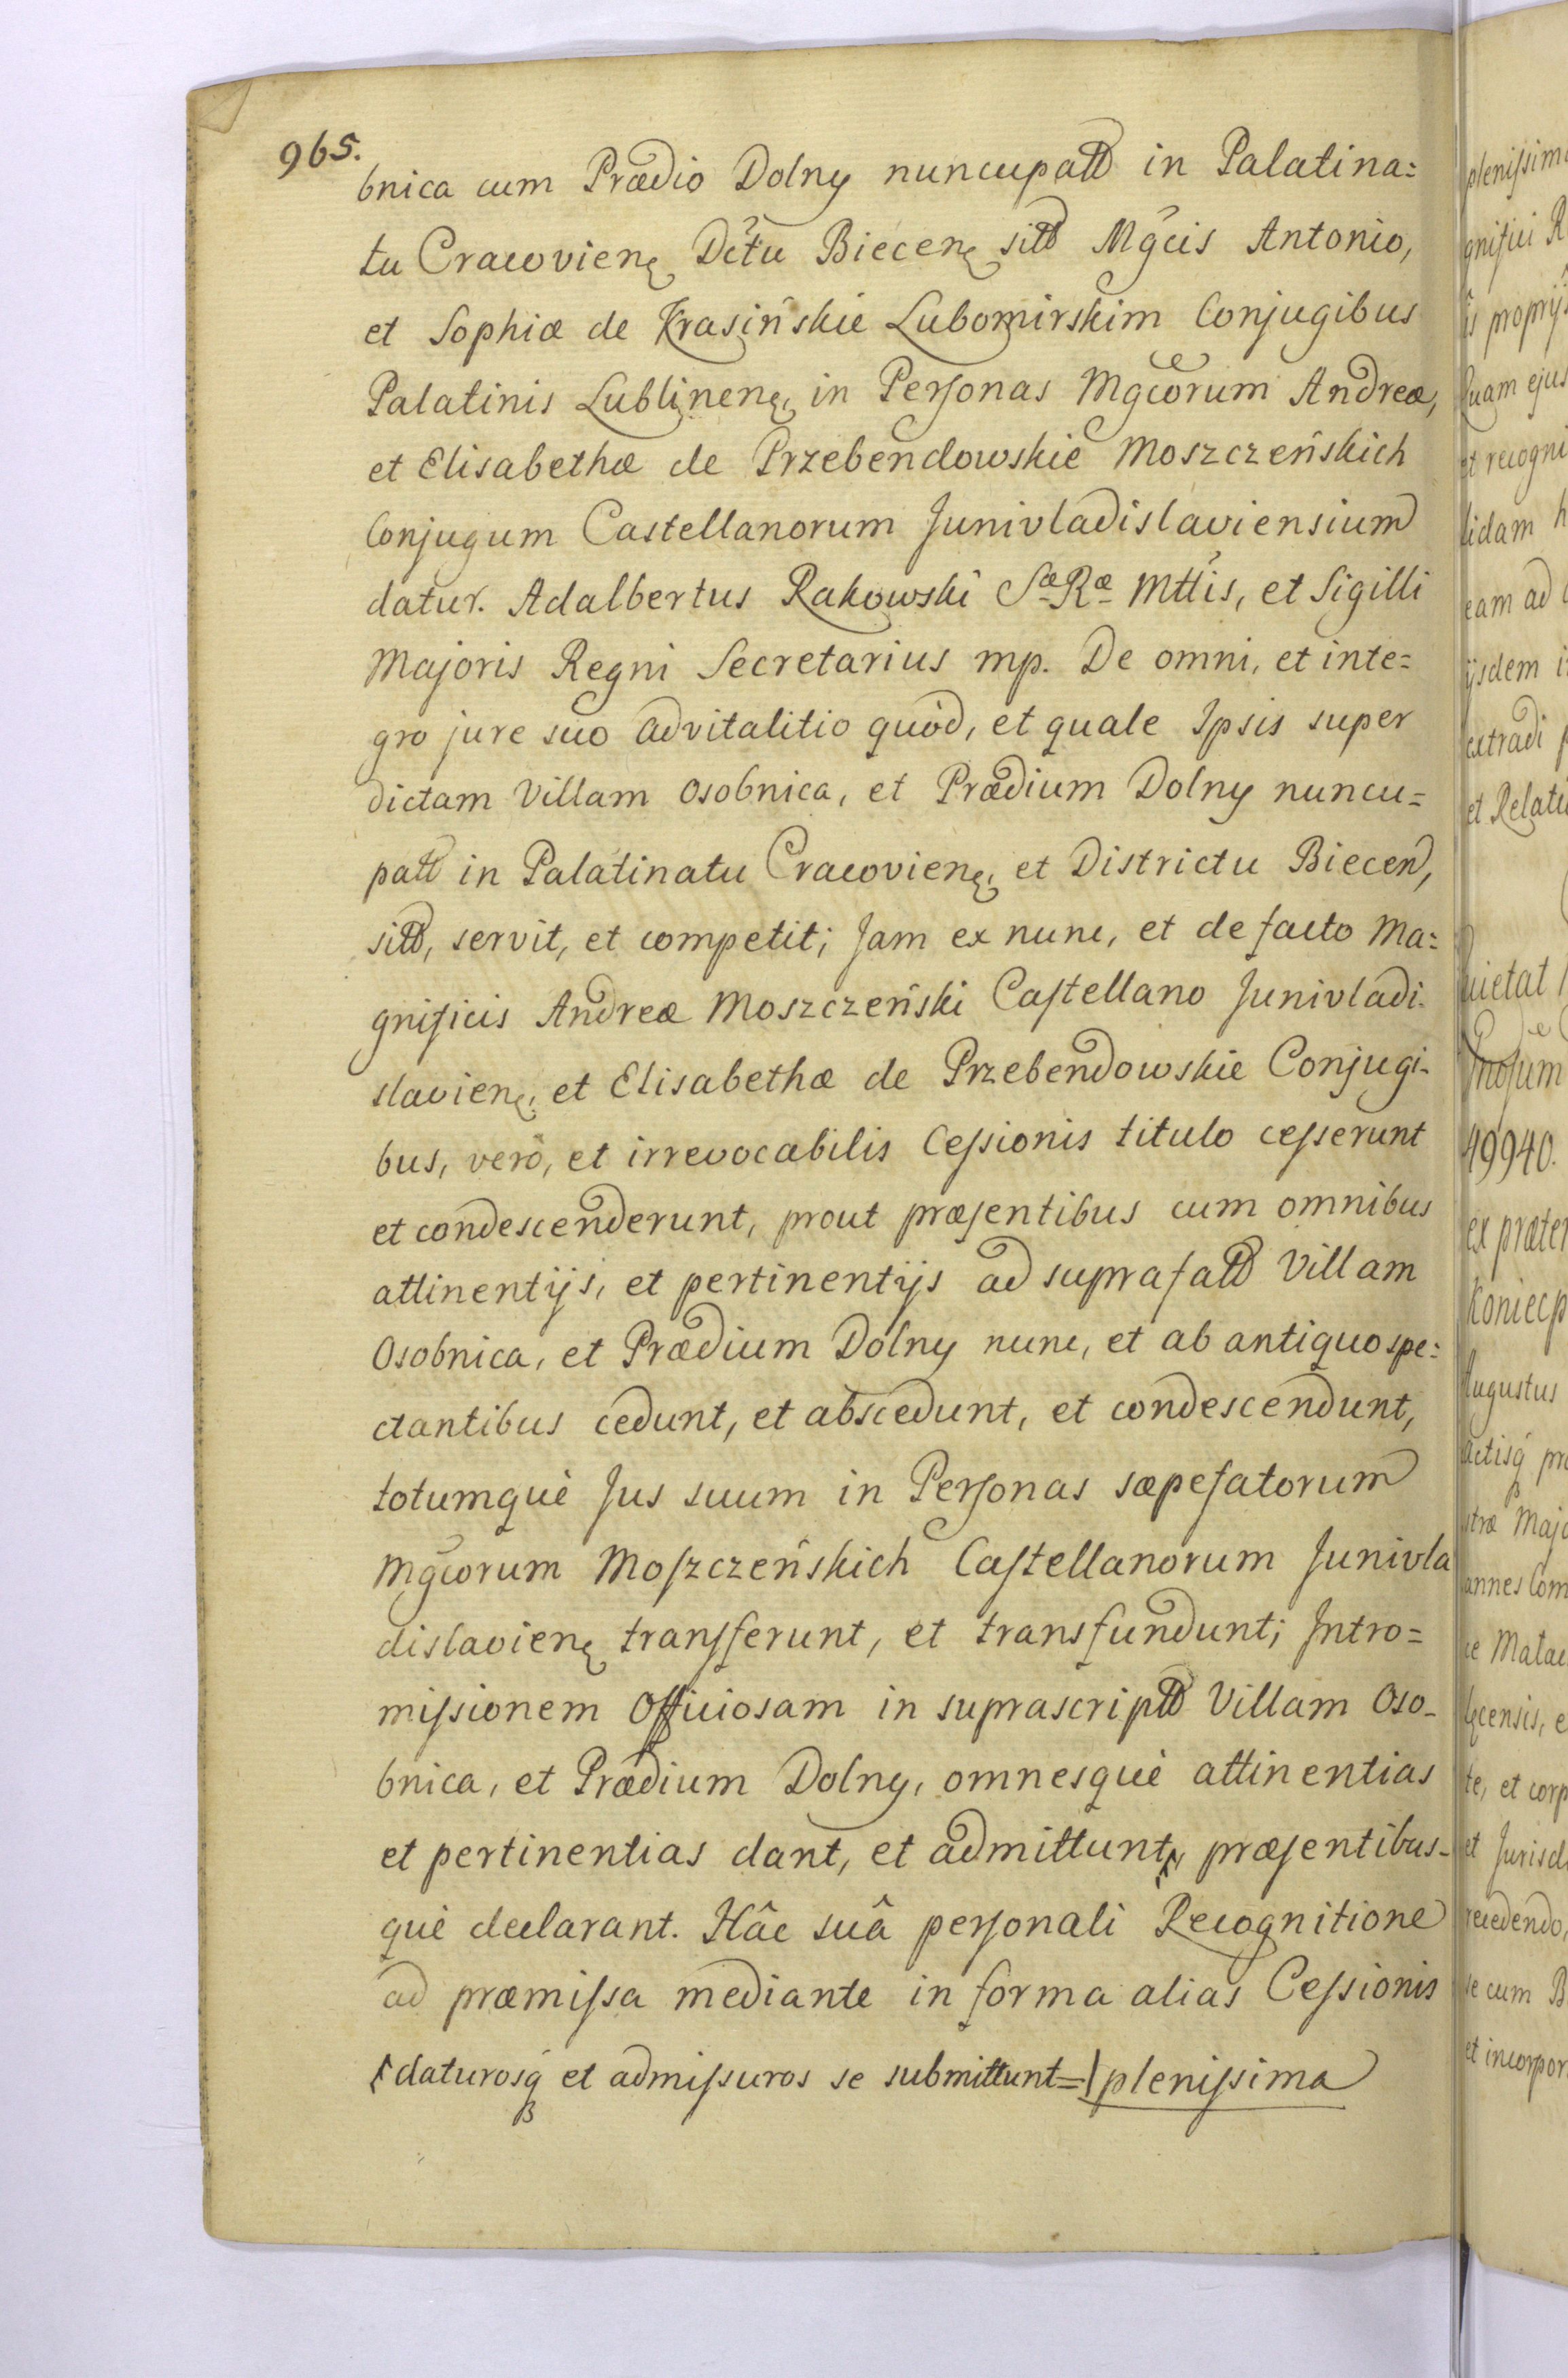 965.
bnica cum Prædio Dolny nuncupatt in Palatina=
tu Cracovien Dctu Biecen sitt Mgcis Antonio,
et Sophiæ de Krasińskie Lubomirskim Conjugibus
Palatinis Lublinen, in Personas Mgcorum Andreæ,
et Elisabethæ de Przebendowskie Moszczeńskich
Conjugum Castellanorum Junivladislaviensium
datur. Adalbertus Rakowski Sæ Ræ Mttis, et Sigilli
Majoris Regni Secretarius mp. De omni, et inte=
gro jure suo advitalitio quod, et quale Ipsis super
dictam Villam Osobnica, et Prædium Dolny nuncu=
patt in Palatinatu Cracovien, et Districtu Biecen,
sitt, servit, et competit; Jam ex nunc, et de facto Ma=
gnificis Andreæ Moszczeński Castellano Junivladi-
slavien, et Elisabethæ de Przebendowskie Conjugi-
bus, verò, et irrevocabilis Cessionis titulo cesserunt
et condescenderunt, prout præsentibus cum omnibus
attinentijs, et pertinentijs ad suprafatt Villam
Osobnica, et Prædium Dolny nunc, et ab antiquo spe=
ctantibus cedunt, et abscedunt, et condescendunt,
totumquè Jus suum in Personas sæpefatorum
Mgcorum Moszczeńskich Castellanorum Junivla
dislavien transferunt, et transfundunt; Intro=
missionem Officiosam in suprascriptt Villam Oso-
bnica, et Prædium Dolny, omnesquè attinentias
et pertinentias dant, et admittunt, præsentibus-
què declarant. Hâc suâ personali Recognitione
ad præmissa mediante in forma alias Cessionis
daturosq et admissuros se submittunt= plenissima